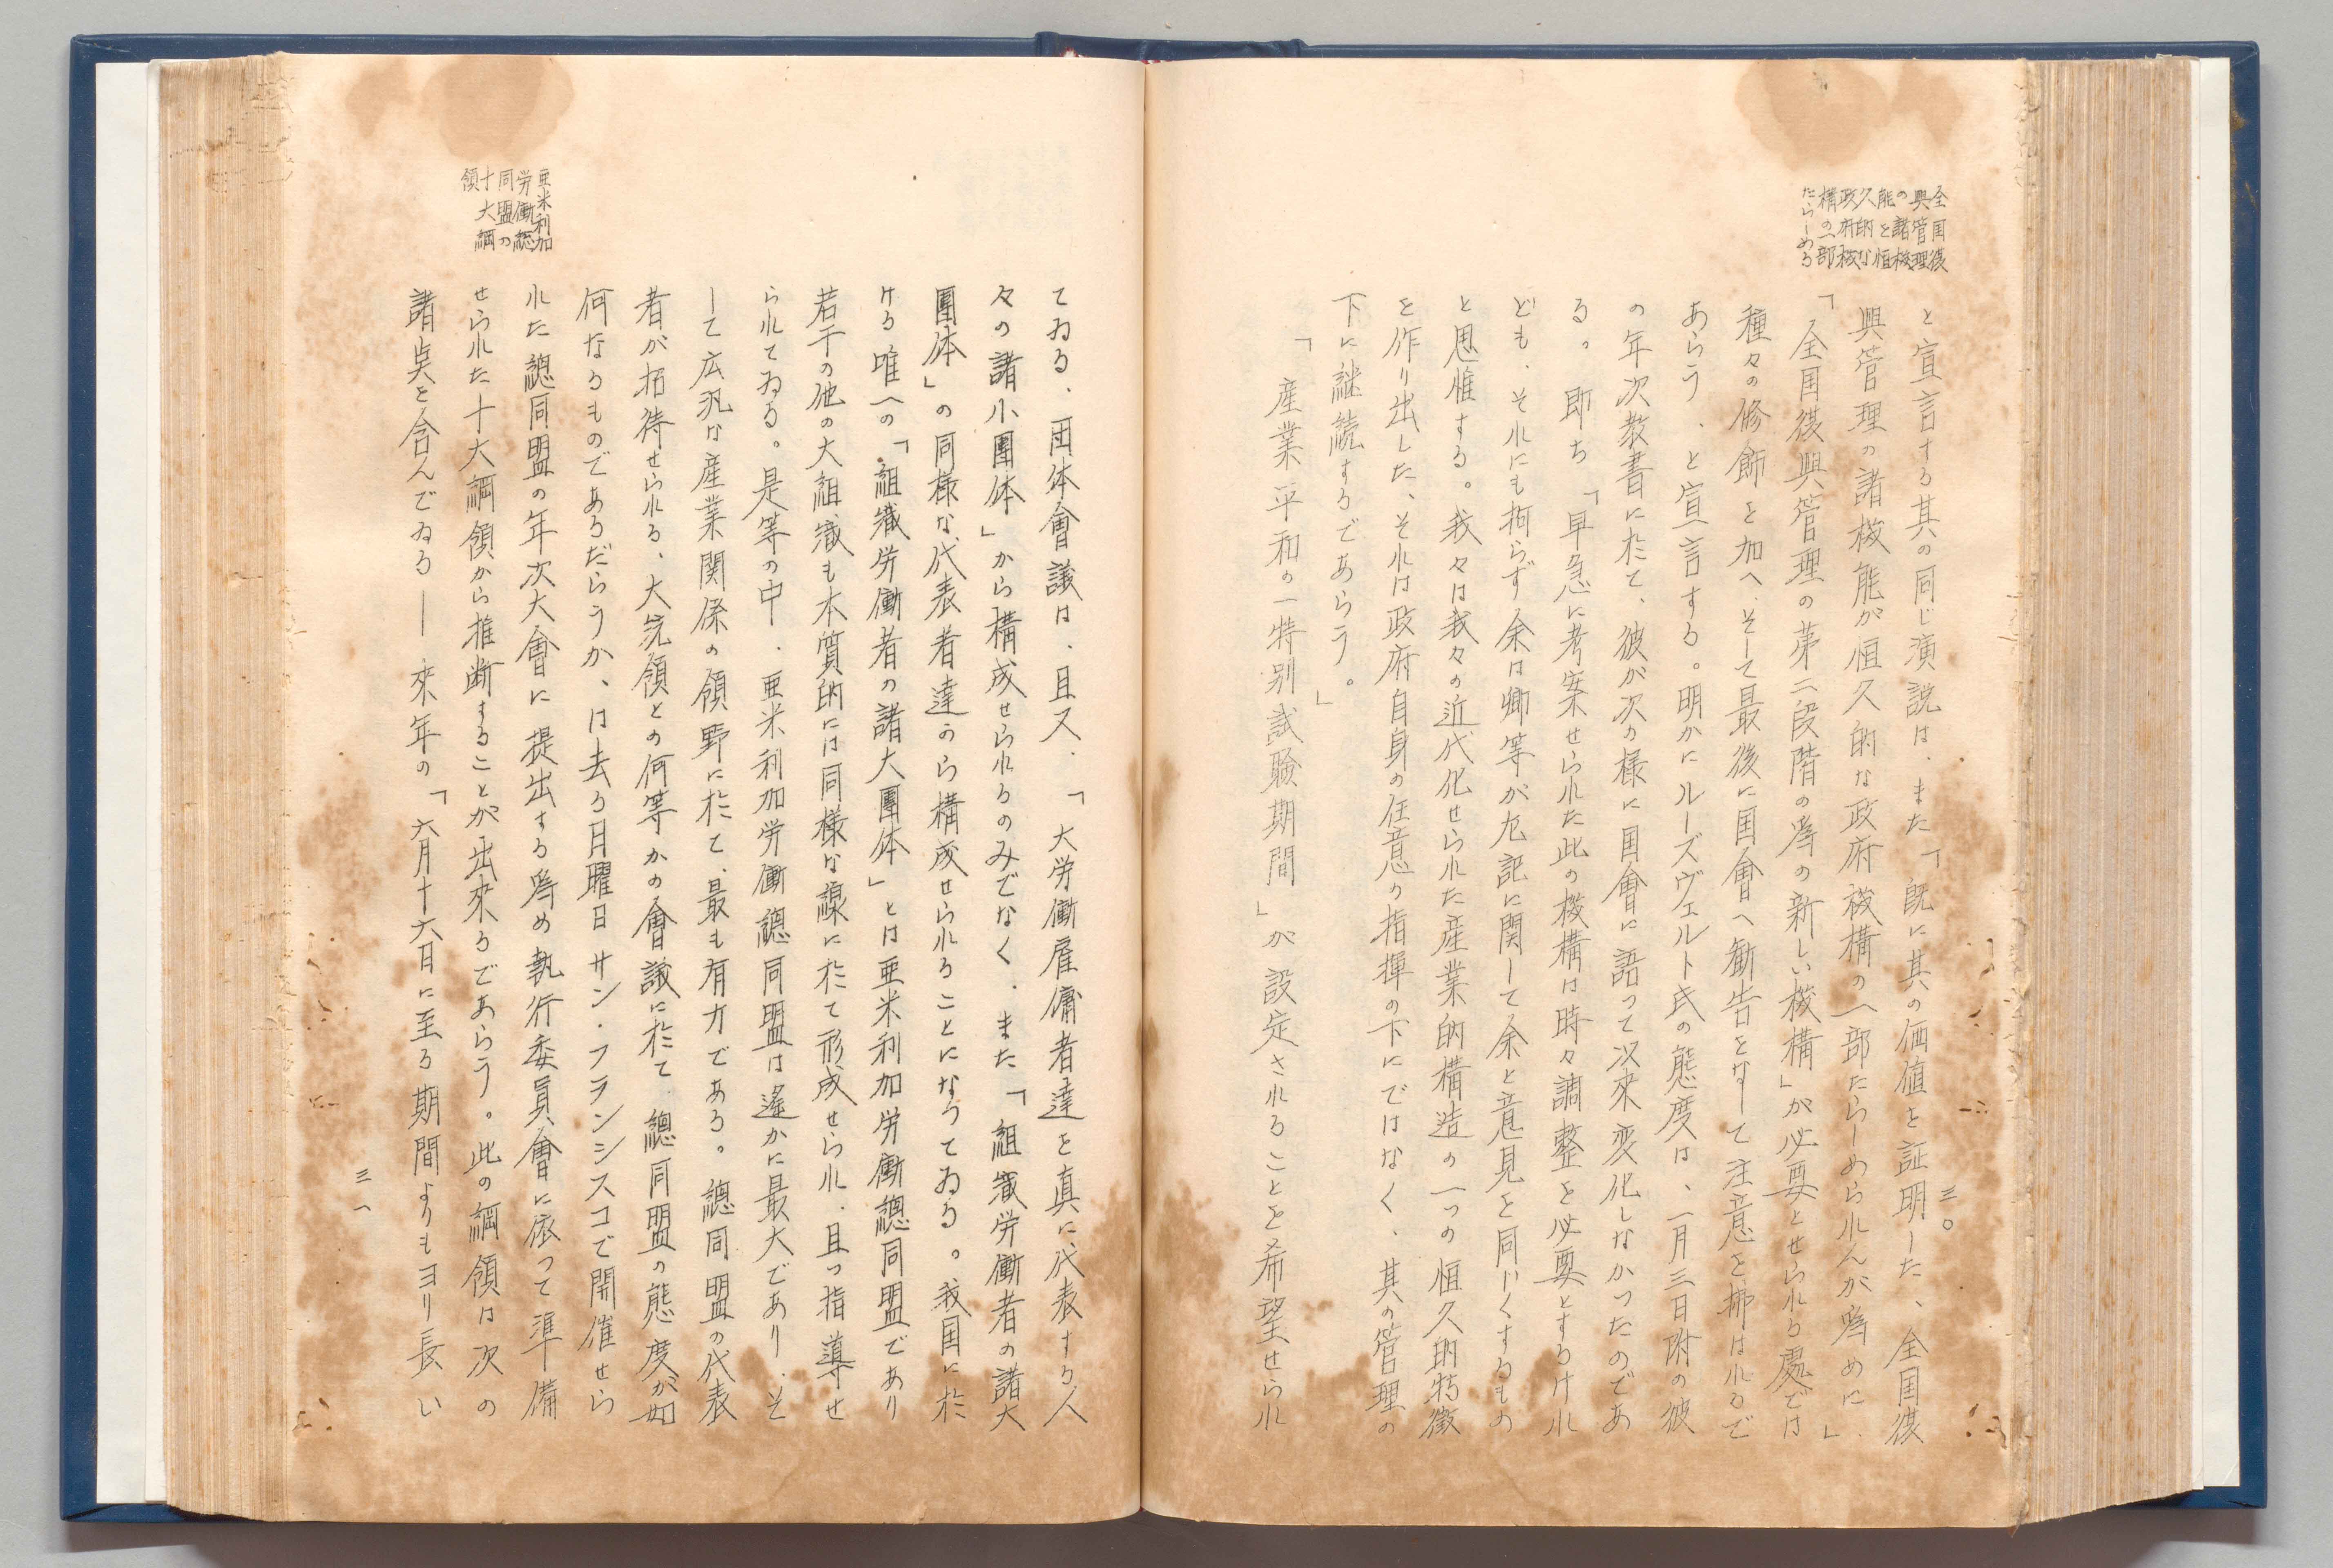 全国復
興管理
の諸機
能と恒
久的な
政府機
構の一部
たらしめる
と宣言する其の同じ演説は、また「既に其の価値を証明した、全国復
興管理の諸機能が恒久的な政府機構の一部たらしめられんが為めに」、
「全国復興管理の第二段階の為の新しい機構」が必要とせられる處では
種々の修飾を加へ、そして最後に国會へ勧告をなして注意を拂はれるで
あらう、と宣言する。明かにルーズヴェルト氏の態度は、一月三日附の彼
の年次教書に於て、彼が次の様に国會に語って以来変化しなかったのであ
る。即ち「早急に考案せられた此の機構は時々調整を必要とするけれ
ども、それにも拘らず余は卿等が右記に関して余と意見を同じくするもの
と思惟する。我々は我々の近代化せられた産業的構造の一つの恒久的特徴
を作り出した、それは政府自身の任意の指揮の下にではなく、其の管理の
下に継続するであらう。」
「産業平和の一特別試験期間」が設定されることを希望せられ
三〇
亜米利加
労働総
同盟の
十大綱
領
てゐる、団体會議は、且又、「大労働雇傭者達を真に代表する人
々の諸小團体」から構成せられるのみでなく、また「組織労働者の諸大
團体」の同様な代表者達から構成せられることになってゐる。我国に於
ける唯一の「組織労働者の諸大團体」とは亜米利加労働總同盟であり
若干の他の大組織も本質的には同様な線に於て形成せられ、且つ指導せ
られてゐる。是等の中、亜米利加労働總同盟は遙かに最大であり、そ
して広汎な産業関係の領野に於て、最も有力である。總同盟の代表
者が招待せられる、大統領との何等かの會議に於て、總同盟の態度が如
何なるものであるだらうか、は去る月曜日サン・フランシスコで開催せら
れた總同盟の年次大會に提出する為め執行委員會に依って準備
せられた十大綱領から推断することが出來るであらう。此の綱領は次の
諸奌を含んでゐる――來年の「六月十六日に至る期間よりもヨリ長い
三一